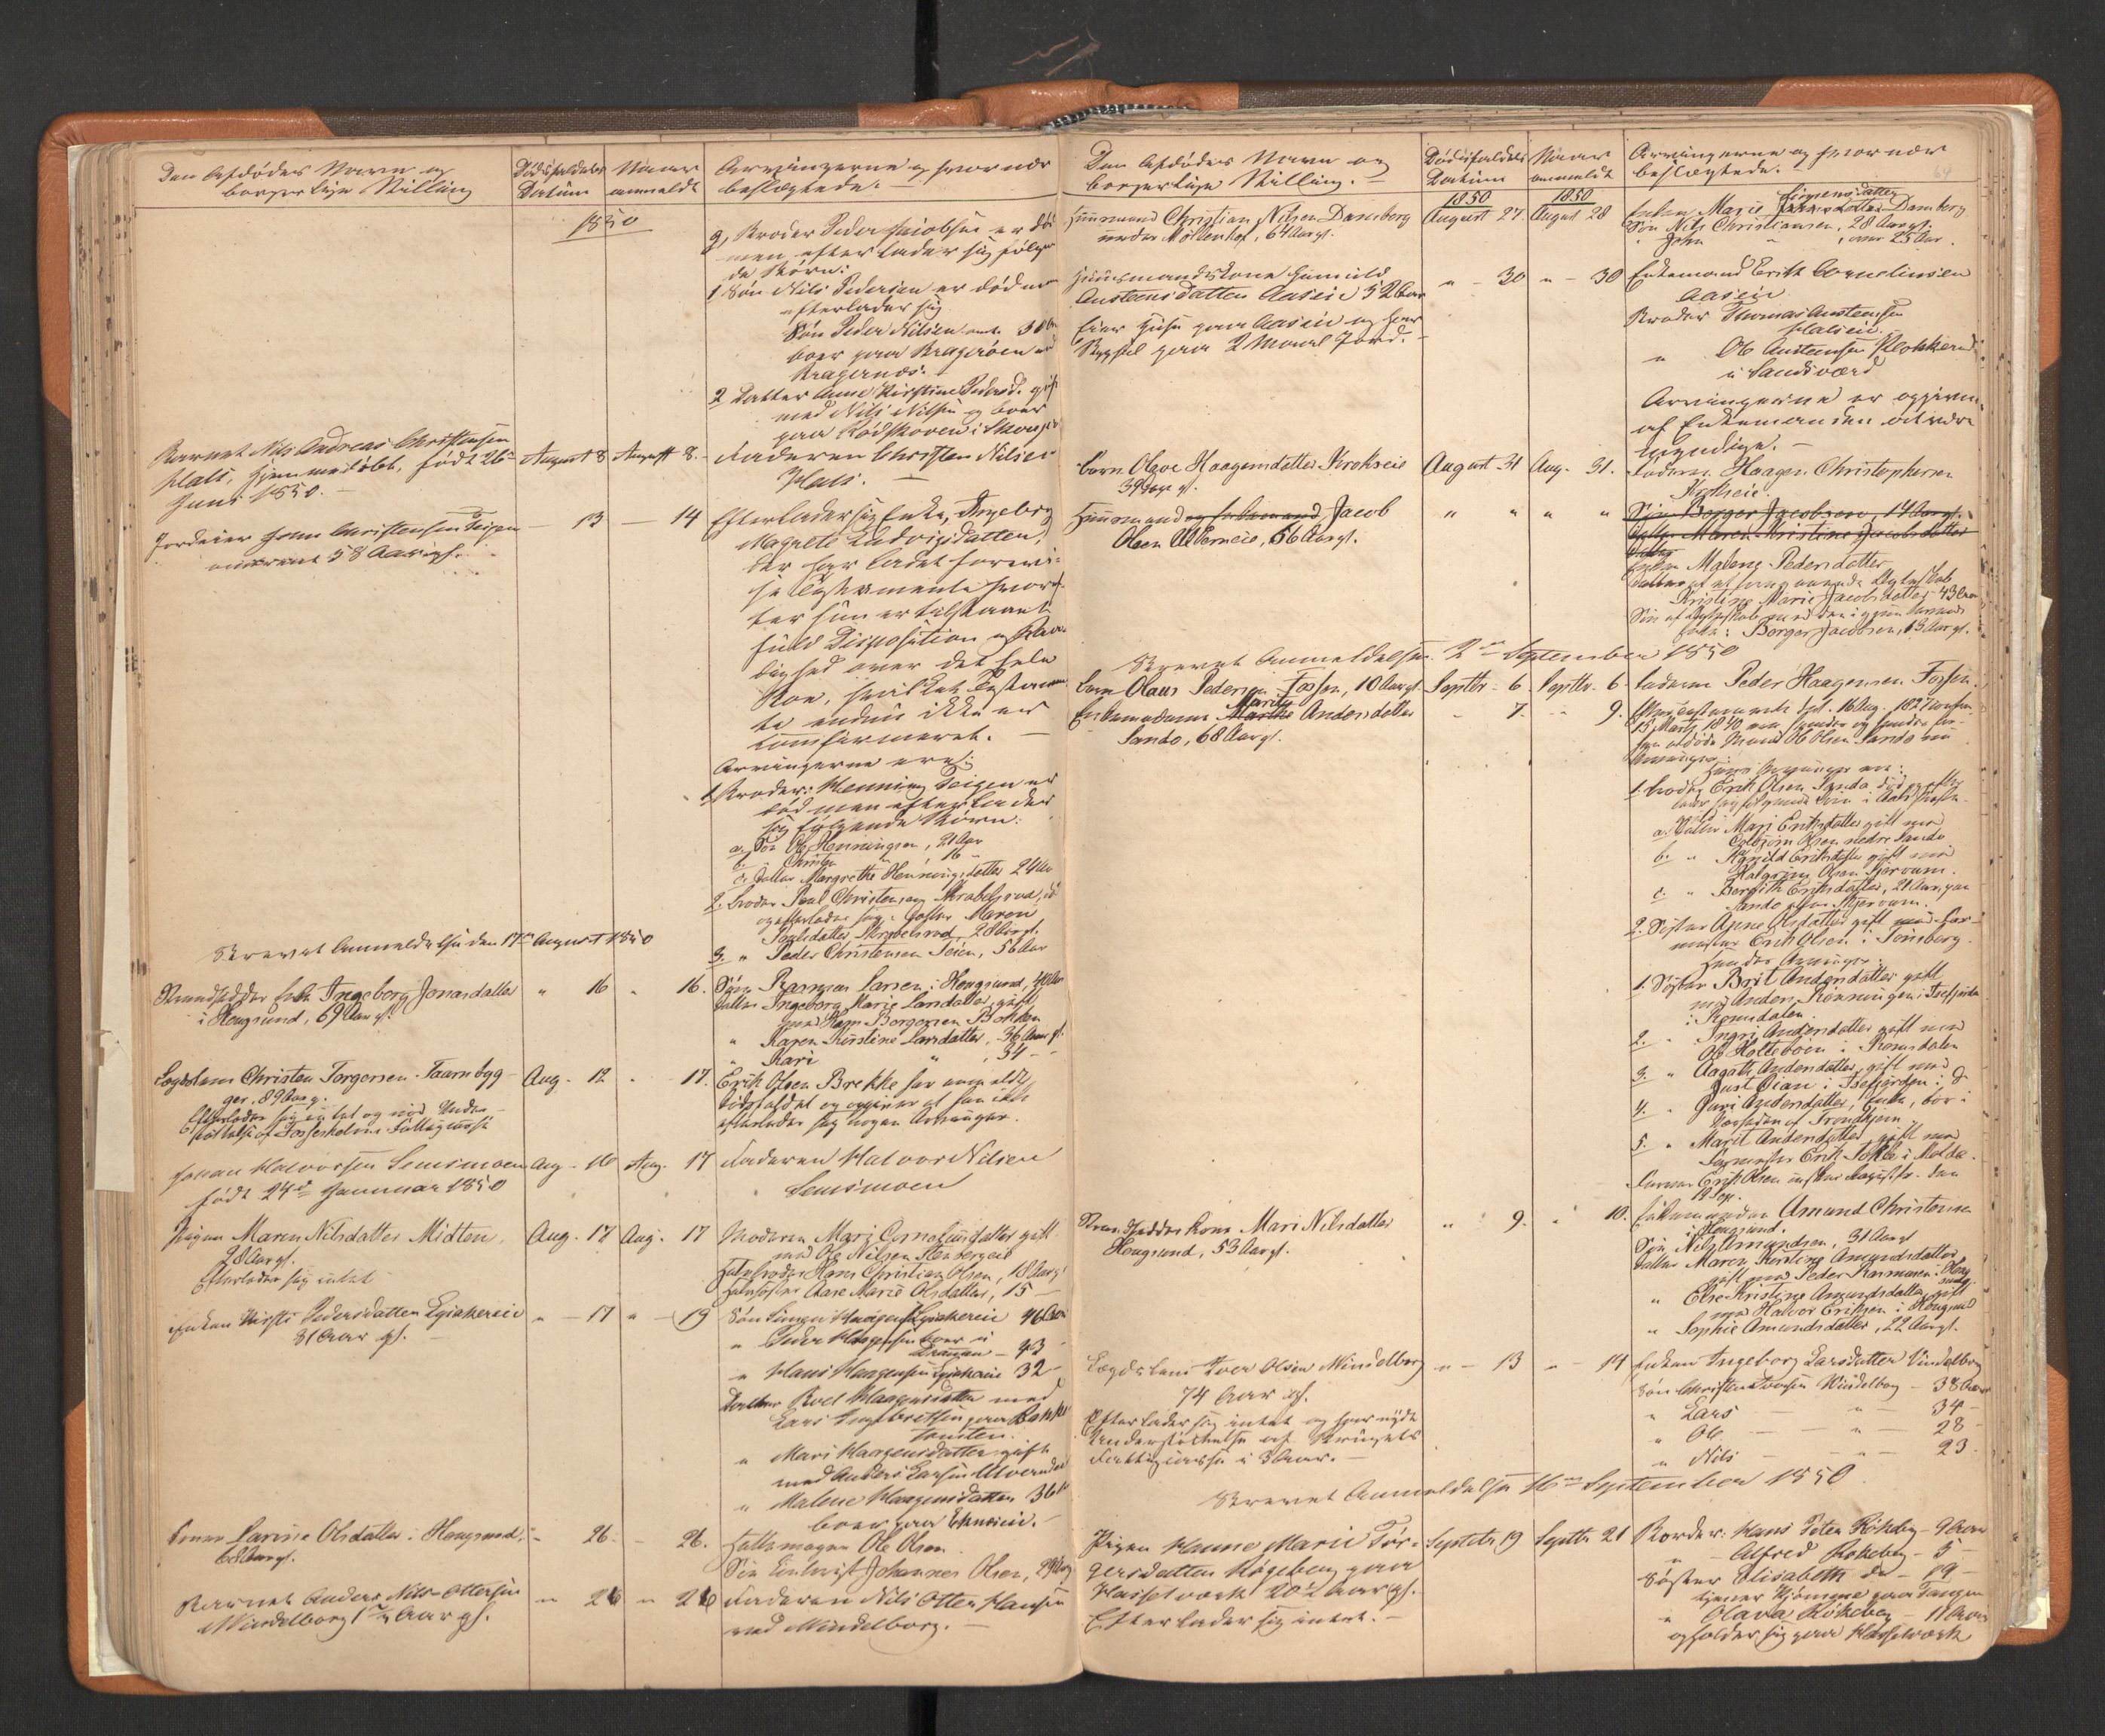 Den Afdødes Navn og
borgerlige Stilling
Dødsfaldets
Datum
Naar
anmeldt
Arvingerne og hvor nær
beslægtede.
1850
g, Broder Peder Jacobsen er død
men efterlader sig følgen
de Børn:
1 Søn Nils Pedersen er død men
efterlader sig
Søn Peder Nilsen
boer paa Bragerøen ved
Bragernæs.
2 Datter Anne Kirstine Pedersd. gift
med Nils Nilsen og boer
paa Rødskoven i Skouger
Barnet Nils Andreas Christensen
Hals, hjemmedøbt, født 26de
Juni 1850.
August 8 August 8.
Faderen Christen Nilsen
Hals.
Jordeier John Christensen Teigen
omtrent 58 Aar gl.
13 14
Efterlader sig Enke, Ingeborg
Magrete Ludvigsdatter,
der har ladet forevi-
se Testamente hvoref-
ter hun er tilstaaet
fuld Disposition og Raa-
dighed over det hele
Boe, hvilket Testamen-
te endnu ikke er
confirmeret.
Arvingerne ere:
1 Broder: Henning Teigen er
død men efterlader
sig følgende Børn:
a. Søn Ole Henningsen, 21 Aar
b. " Christen " , 16 "
c. Datter Margrethe Henningsdatter 24 Aar
2. Broder Poul Christensen Skrabelsrud, død
og efterlader sig: Datter Maren
Poulsdatter Skrabelsrud, 28 Aar gl.
3. " Peder Christensen Teien, 56 Aar
Skrevet Anmeldelse den 17de August 1850
Strandsidder Enke Ingeborg Jonasdatter
i Hougsund, 69 Aar gl.
" 16 " 16.
Søn Rasmus Larsen i Hougsund, 40 Aar
Datter Ingeborg Marie Larsdatter, gift
med Hans Borgersen Bakken
" Karen Kirstine Larsdatter, 36 Aar gl.
" Kari " , 34 -
Lægdslem Christen Torgersen Taarnbyg-
ger, 89 Aar g.
Efterlader sig intet og nød Under-
støttelse af Fossesholms Fattigkasse
Aug. 12 - 17.
Erik Olsen Brekke har anmeldt
Dødsfaldet og opgiver at han ikke
efterlader sig nogen Arvinger.
Johan Halvorsen Semsmoen
født 24de Januar 1850
Aug - 16 Aug. 17
Faderen Halvor Nilsen
Semsmoen
Pigen Maren Nilsdatter Midten,
28 Aar gl.
Efterlader sig intet
Aug. 17 Aug. 17
Moderen Mari Corneliusdatter gift
med Ole Nilsen Stenbergeie
Halvbroder Hans Christian Olsen, 18 Aar gl
Halvsøster Aase Marie Olsdatter, 15 -
Enken Kirsti Pedersdatter Egiakereie
81 Aar gl.
" - 17 " - 19
Søn Simen Haagensen Egiakereie 46 Aar
" Peder Haagensen boer i
Drammen - 43
" Hans Haagensen Egiakereie 32
Datter Boel Haagensdatter med
Lars Engebretsen paa Bakke
tomten.
" Mari Haagensdatter gift
med Anders Larsen
" Malene Haagensdatter 36 Aar
boer paa
Konen Larine Olsdatter i Hougsund,
68 Aar gl.
" 26. - 26.
Fattigmanden Ole Olsen
Søn Johannes Olsen, 29 Aar
Barnet Anders Nils Ottersen
Mindelborg 1½ Aar gl.
" 26 " 26
Faderen Nils Otter Hansen
ved Mindelborg.
Den Afdødes Navn og
borgerlige Stilling.
Dødsfaldets
Datum
Naar
anmeldt
Arvingerne og hvor nær
beslægtede.
64
1850
1850
Huusmand Christian Nilsen Damborg
under Møllenhof, 64 Aar gl.
August 27. August 28
Enken Marie Simensdatter Damborg
Søn Nils Christiansen, 28 Aar gl.
" John " , over 25 Aar.
Huusmandskone Gunnild
Austensdatter Aaseie 52 Aar
Eier Huse paa Aaseie og har
Bygsel paa 2 Maal Jord.
" - 30 " - 30
Enkemand Erik Corneliusen
Aaseie
Broder Thomas Austensen
Halseie.
" Ole Austensen Klokkerud
i Sandsværd
Arvingerne er opgiven
af Enkemanden at være
myndige.
Barn Olave Haagensdatter Krokseie
39 Dage gl.
August 31 Aug. 31.
Faderen Haagen Christophersen
Krokseie.
Huusmand og Enkemand Jacob
Olsen Alverneie, 66 Aar gl.
" " " "
Søn Borger Jacobsen, 14 Aar gl.
Datter Maren Kristine Jacobsdatter
Enken Malene Pedersdatter
Datter af et foregaaende Ægteskab
Kristine Marie Jacobsdatter 43 Aar
Søn af Ægteskab med den igjenlevende
Enke: Borger Jacobsen, 13 Aar gl.
Skrevet Anmeldelse 2den September 1850
Barn Olaus Pedersen Fossen, 10 Aar gl.
Septbr. 6. Septbr. 6
Faderen Peder Haagensen Fossen.
Enkemadame Marthe Marit Andersdatter
Sando, 68 Aar gl.
" 7. " 9.
Efter Testamente dat. 16 Aug. 1827 confirm.
13 Marts 1840 ere hendes og hendes for-
hen afdøde Mand Ole Olsen Sando nu
Arvinger
Hans Arvinger ere:
1. Broder Erik Olsen Sando død, efter-
lader sig følgende Børn i Aals Præstegj.
a. Datter Mari Eriksdatter gift med
Colbjørn Olsen nedre Sando
b. " Gunild Eriksdatter gift med
Halgrim Olsen Tjervum.
c. " Bergith Eriksdatter, 21 Aar, paa
Sando eller Tjervum.
2. Søster Agnne Olsdatter gift med Far-
mester Erik Olsen i Tønsberg.
Hendes Arvinger:
1. Søster Brit Andersdatter gift
med Anders Rønningen i Isefjorden
i Romsdalen.
2. " Ingri Andersdatter gift med
Ole Holtebøen i Romsdalen
3. " Aagath Andersdatter, gift med
Just Øian i Isefjorden i D
4. " Guri Andersdatter, Enke, bor i
Nærheden af Trondhjem
5. " Marit Andersdatter gift med
Erik Sokle i Molde.
Farver Erik Olsen
12 Sep.
Strandsidderkone Mari Nilsdatter
Hougsund, 53 Aar gl.
" 9. " 10.
Enkemanden Amund Christensen
i Hougsund.
Søn Nils Amundsen, 31 Aar gl
Datter Maren Kirstine Amundsdatter
gift med Peder Rasmusen i Houg-
sund.
" Else Kristine Amundsdatter gift
med Halvor Eriksen i Hougsund
" Sophie Amundsdatter, 22 Aar gl.
Lægdslem Iver Olsen Mindelborg
74 Aar gl.
Efterlader sig intet og har nydt
Understøttelse af Brugets
Fattigkasse i 3 Aar.
" - 13 " - 14
Enken Ingeborg Larsdatter Vindelborg
Søn Christen Iversen Windelborg - 38 Aar
" Lars - " - 34 -
" Ole - " - 28 -
" Nils - " - 23.
Skrevet Anmeldelse 16de September 1850
Pigen Hanne Marie Tor-
gersdatter Røgeberg paa
Hasselværk 20½ Aar gl.
Efterlader sig intet.
Septbr 19 Septbr 21
Broder: Hans Peter Røkeberg - 9 Aar
" - Alfred Røkeberg - 5 -
Søster Elisabeth do - 19 -
tjener Hjemme paa Tangen
" Olava Røkeberg - 11 Aar
opholder sig paa Hasselværk